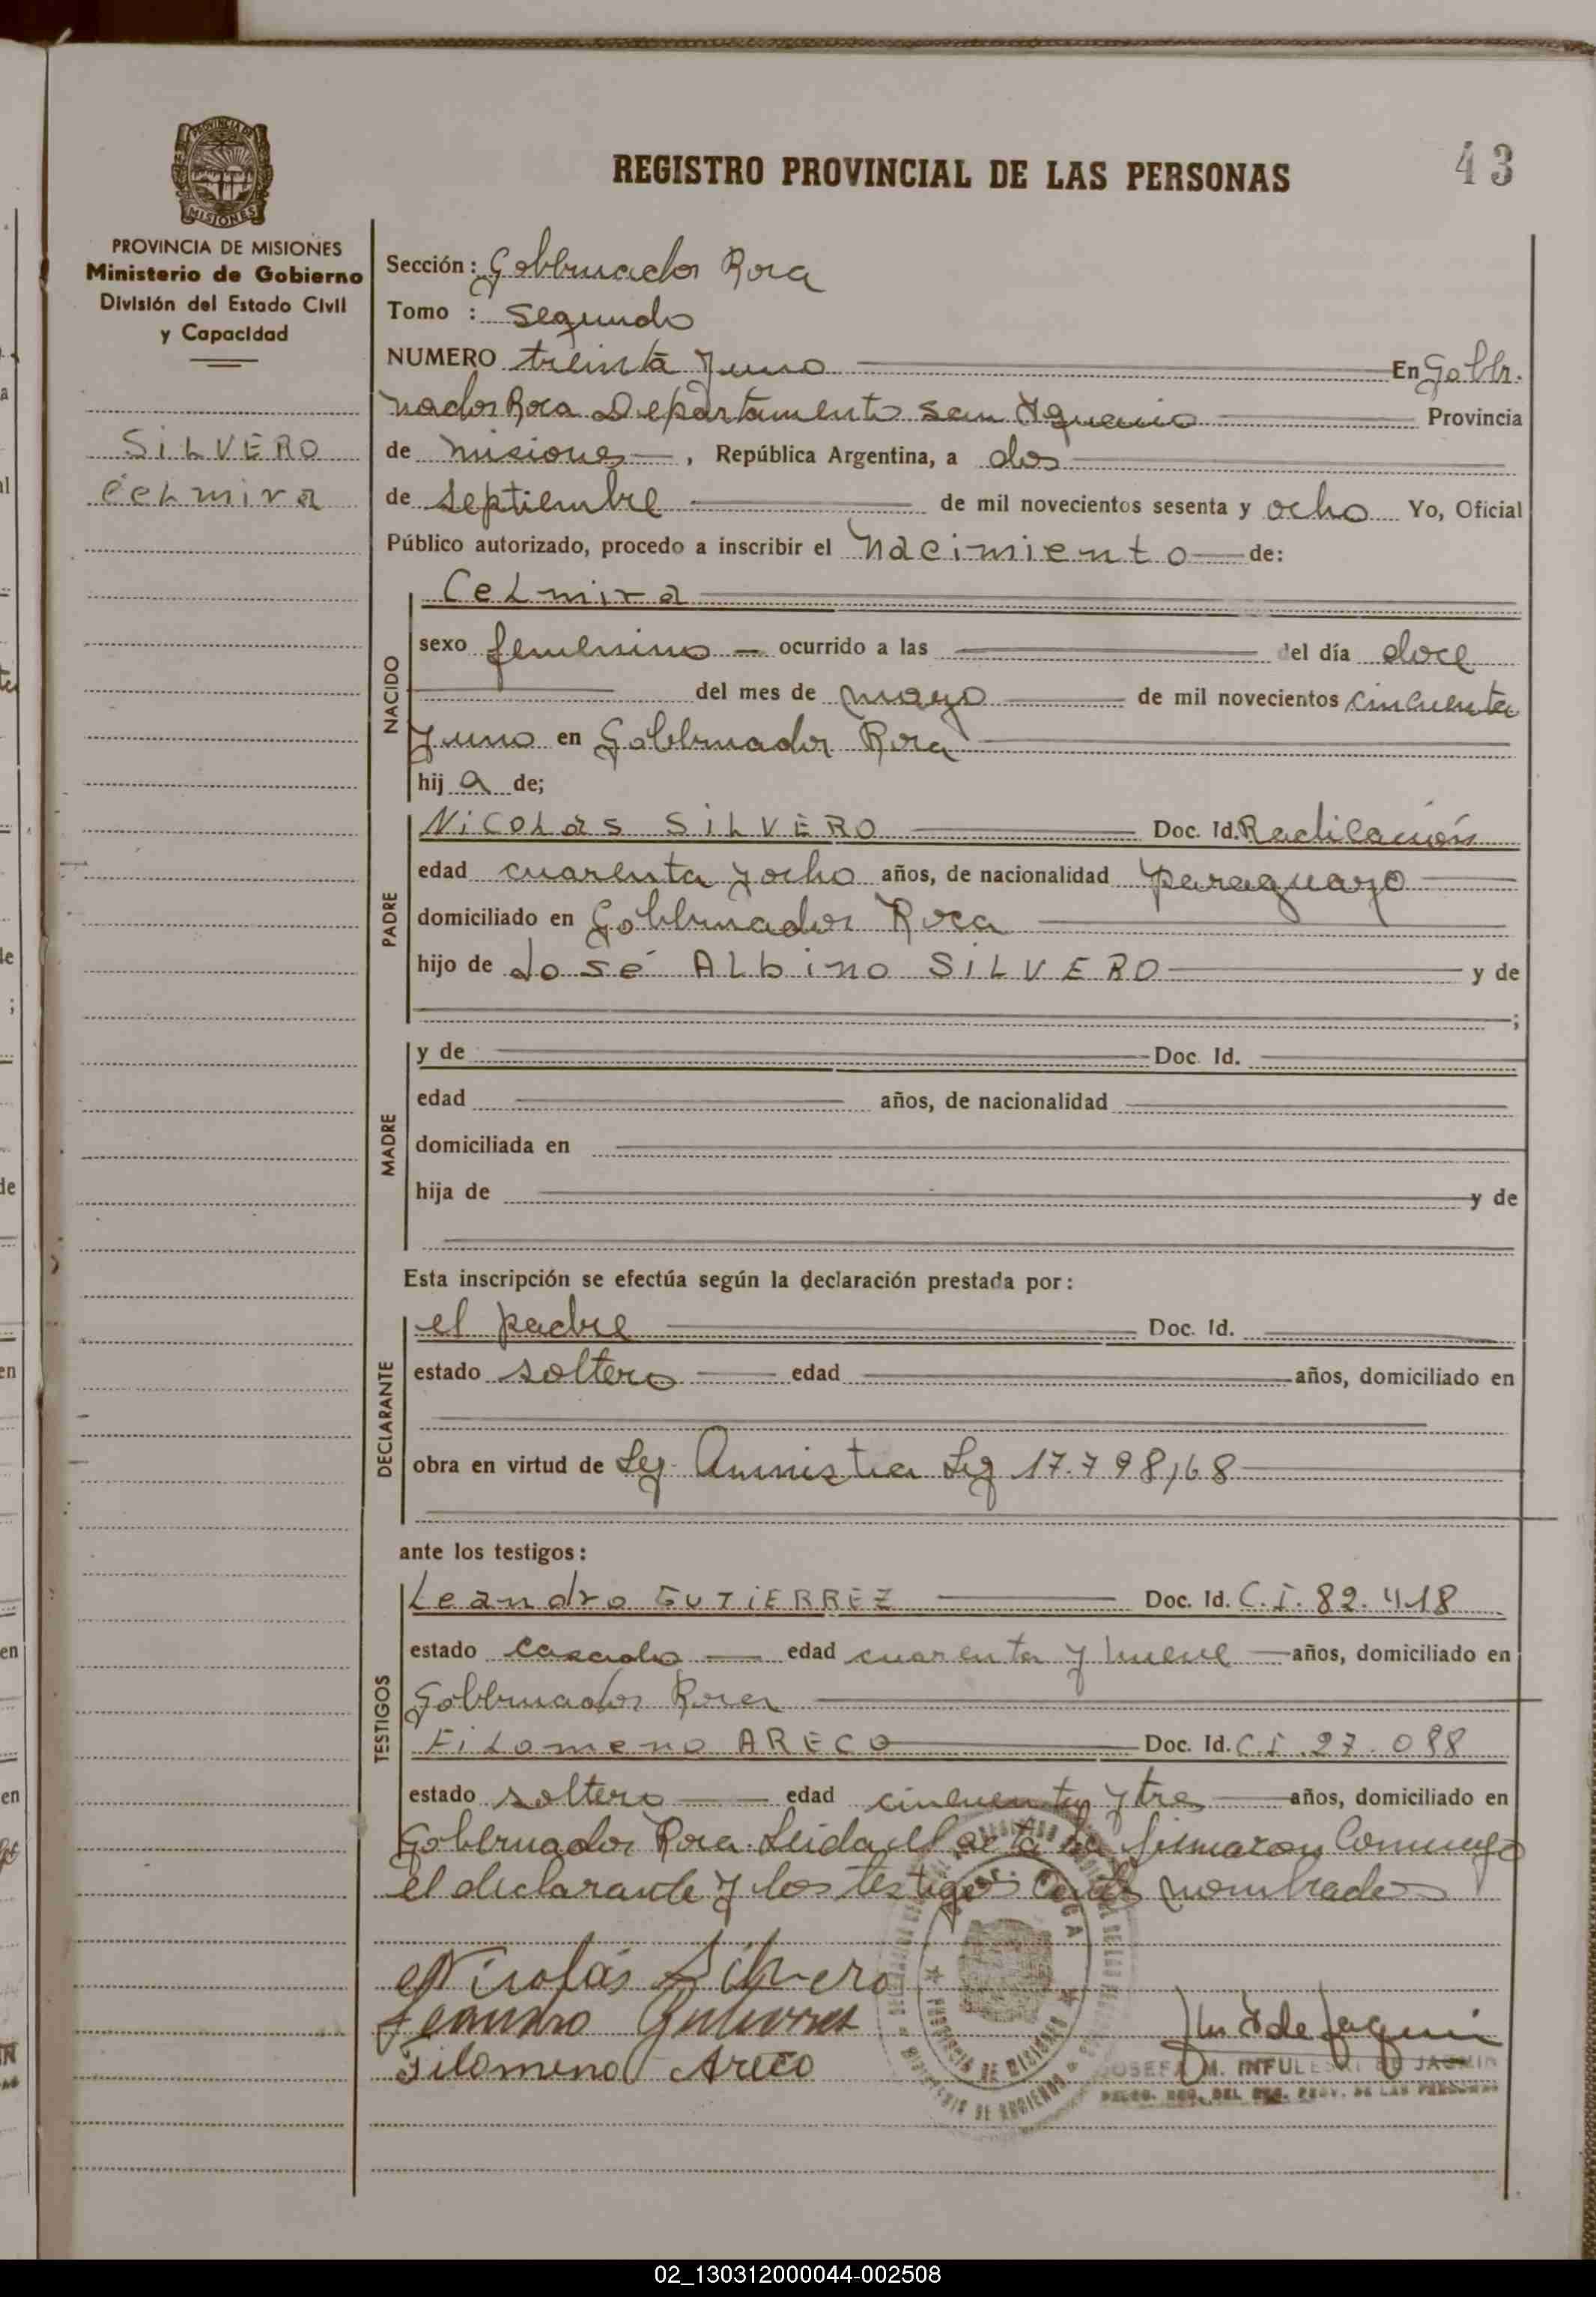 43
REGISTRO PROVINCIAL DE LAS PERSONAS
PROVINCIA DE MISIONES
PROVINCIA DE MISIONES
Ministerio de Gobierno
División del Estado Civil
y Capacidad
SILVERO
CELmira
Sección: Gobernador Roca
Tomo : Segundo
NUMERO treinta y uno En Gober.
nador Roca Departamento San Ignacio Provincia
de Misiones, República Argentina, a dos
de septiembre de mil novecientos sesenta y ocho Yo, Oficial
Público autorizado, procedo a inscribir el Nacimiento de:
NACIDO
CeLmira
sexo femenino ocurrido a las del día doce
del mes de mayo de mil novecientos cincuenta
y uno en Gobernador Roca
hija de;
PADRE
NiCOLás SILVERO Doc. Id. Radicación
edad cuarenta y ocho años, de nacionalidad paraguayo
domiciliado en Gobernador Roca
hijo de José ALbino SILVERO y de
;
MADRE
y de Doc. Id.
edad años, de nacionalidad
domiciliada en
hija de y de
Esta inscripción se efectúa según la declaración prestada por:
DECLARANTE
el padre Doc. Id.
estado soltero edad años, domiciliado en
obra en virtud de Ley Amnistia Ley 17.798/68
ante los testigos:
TESTIGOS
Leandro GUTIERREZ Doc. Id. C.I. 82.418
estado casado edad cuarenta y nueve años, domiciliado en
Gobernador Roca
FiLomeno ARECO Doc. Id. C.I. 27.088
estado soltero edad cincuenta y tres años, domiciliado en
Gobernador Roca. Leida el acta la firmaron conmigo
el declarante y los testigos nombrados
Nicolás Silvero
Leandro Gutierrez
Filomeno Areco
JOSEFA M. INFULESKI DE JACMIN
PROVINCIA DE MISIONES
02_130312000044-002508